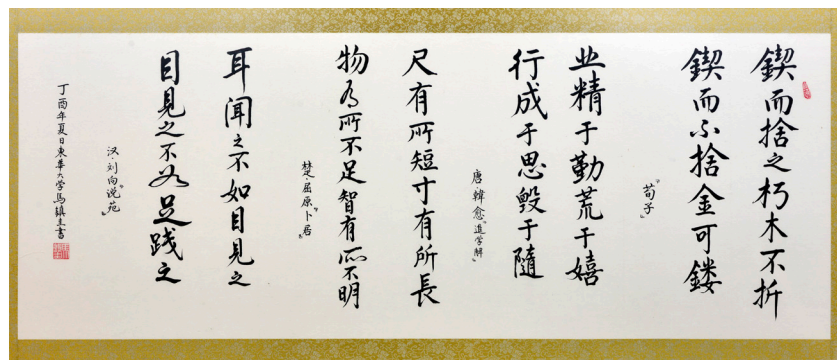 鍥而捨之朽木不折
鍥而不捨金可鏤
『荀子』
业精于勤荒于嬉
行成于思毀于隨
唐韓愈『進学解』
尺有所短寸有所長
物有所不足智有所不明
楚·屈原『卜居』
耳闻之不如目見之
目見之不如足践之
汉·刘向『说苑』
丁酉年夏日東華大学馬鎮圭書